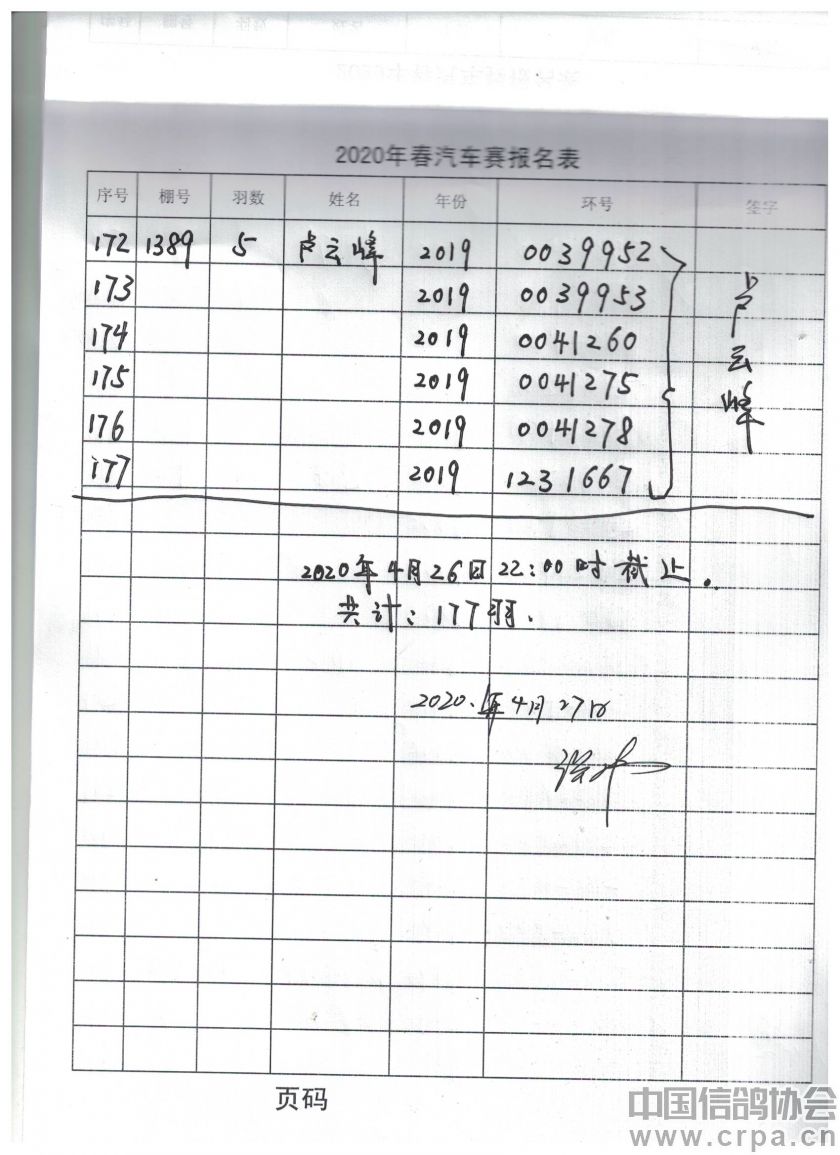 2020年春汽车赛报名表
序号 棚号 羽数 姓名 年份 环号 签字
172 1389 5 卢云峰 2019 0039952
173 2019 0039953
174 2019 0041260
175 2019 0041275
176 2019 0041278
177 2019 1231667
卢云峰
2020年4月26日22:00时截止.
共计:177羽.
2020.年4月27日
页码
中国信鸽协会
www.crpa.cn